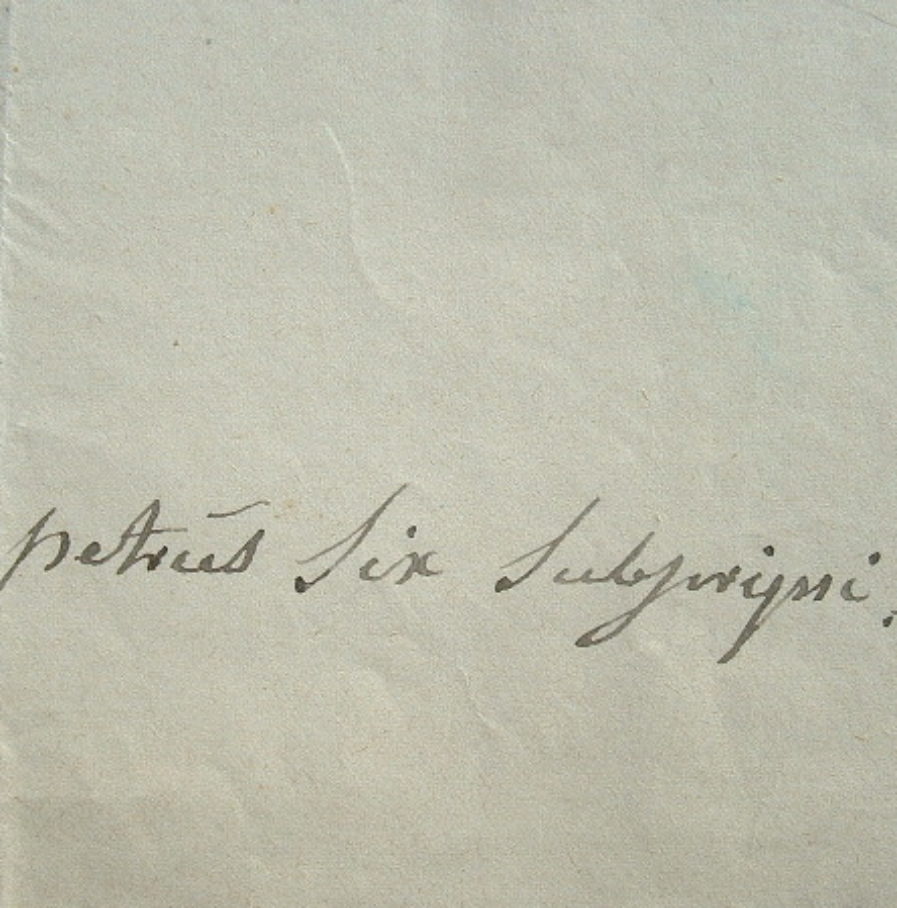 petrus Six Subscripsi.